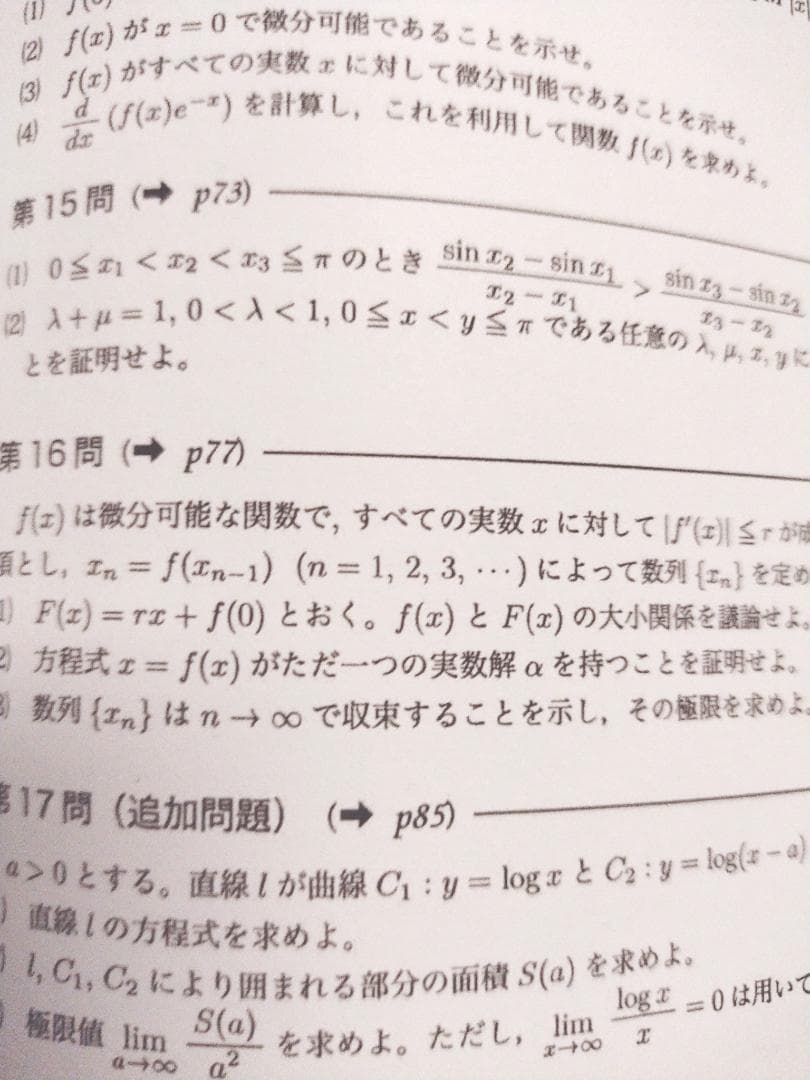 (1) f(0)
(2) f(x) が x = 0 で微分可能であることを示せ。
(3) f(x) がすべての実数 x に対して微分可能であることを示せ。
(4) d/dx (f(x)e^{-x}) を計算し，これを利用して関数 f(x) を求めよ。
第15問 (➡ p73)
(1) 0 ≦ x₁ < x₂ < x₃ ≦ π のとき (sin x₂ − sin x₁)/(x₂ − x₁) > (sin x₃ − sin x₂)/(x₃ − x₂)
(2) λ + μ = 1, 0 < λ < 1, 0 ≦ x < y ≦ π である任意の λ, μ, x, y に
とを証明せよ。
第16問 (➡ p77)
f(x) は微分可能な関数で, すべての実数 x に対して |f′(x)| ≦ r が
項とし，xₙ = f(xₙ₋₁) (n = 1, 2, 3, ⋯) によって数列 {xₙ} を定め
1) F(x) = rx + f(0) とおく。f(x) と F(x) の大小関係を議論せよ。
2) 方程式 x = f(x) がただ一つの実数解 α を持つことを証明せよ。
3) 数列 {xₙ} は n → ∞ で収束することを示し，その極限を求めよ。
第17問（追加問題） (➡ p85)
a > 0 とする。直線 l が曲線 C₁ : y = log x と C₂ : y = log(x − a)
) 直線 l の方程式を求めよ。
) l, C₁, C₂ により囲まれる部分の面積 S(a) を求めよ。
) 極限値 lim_{a→∞} S(a)/a² を求めよ。ただし，lim_{x→∞} (log x)/x = 0 は用いて